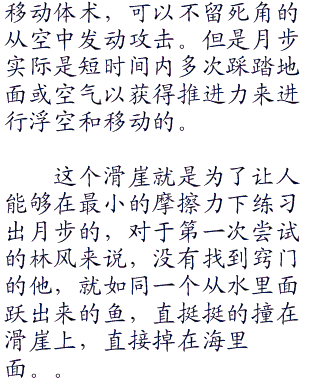 移动体术，可以不留死角的
从空中发动攻击。但是月步
实际是短时间内多次踩踏地
面或空气以获得推进力来进
行浮空和移动的。
这个滑崖就是为了让人
能够在最小的摩擦力下练习
出月步的，对于第一次尝试
的林风来说，没有找到窍门
的他，就如同一个从水里面
跃出来的鱼，直挺挺的撞在
滑崖上，直接掉在海里
面。。